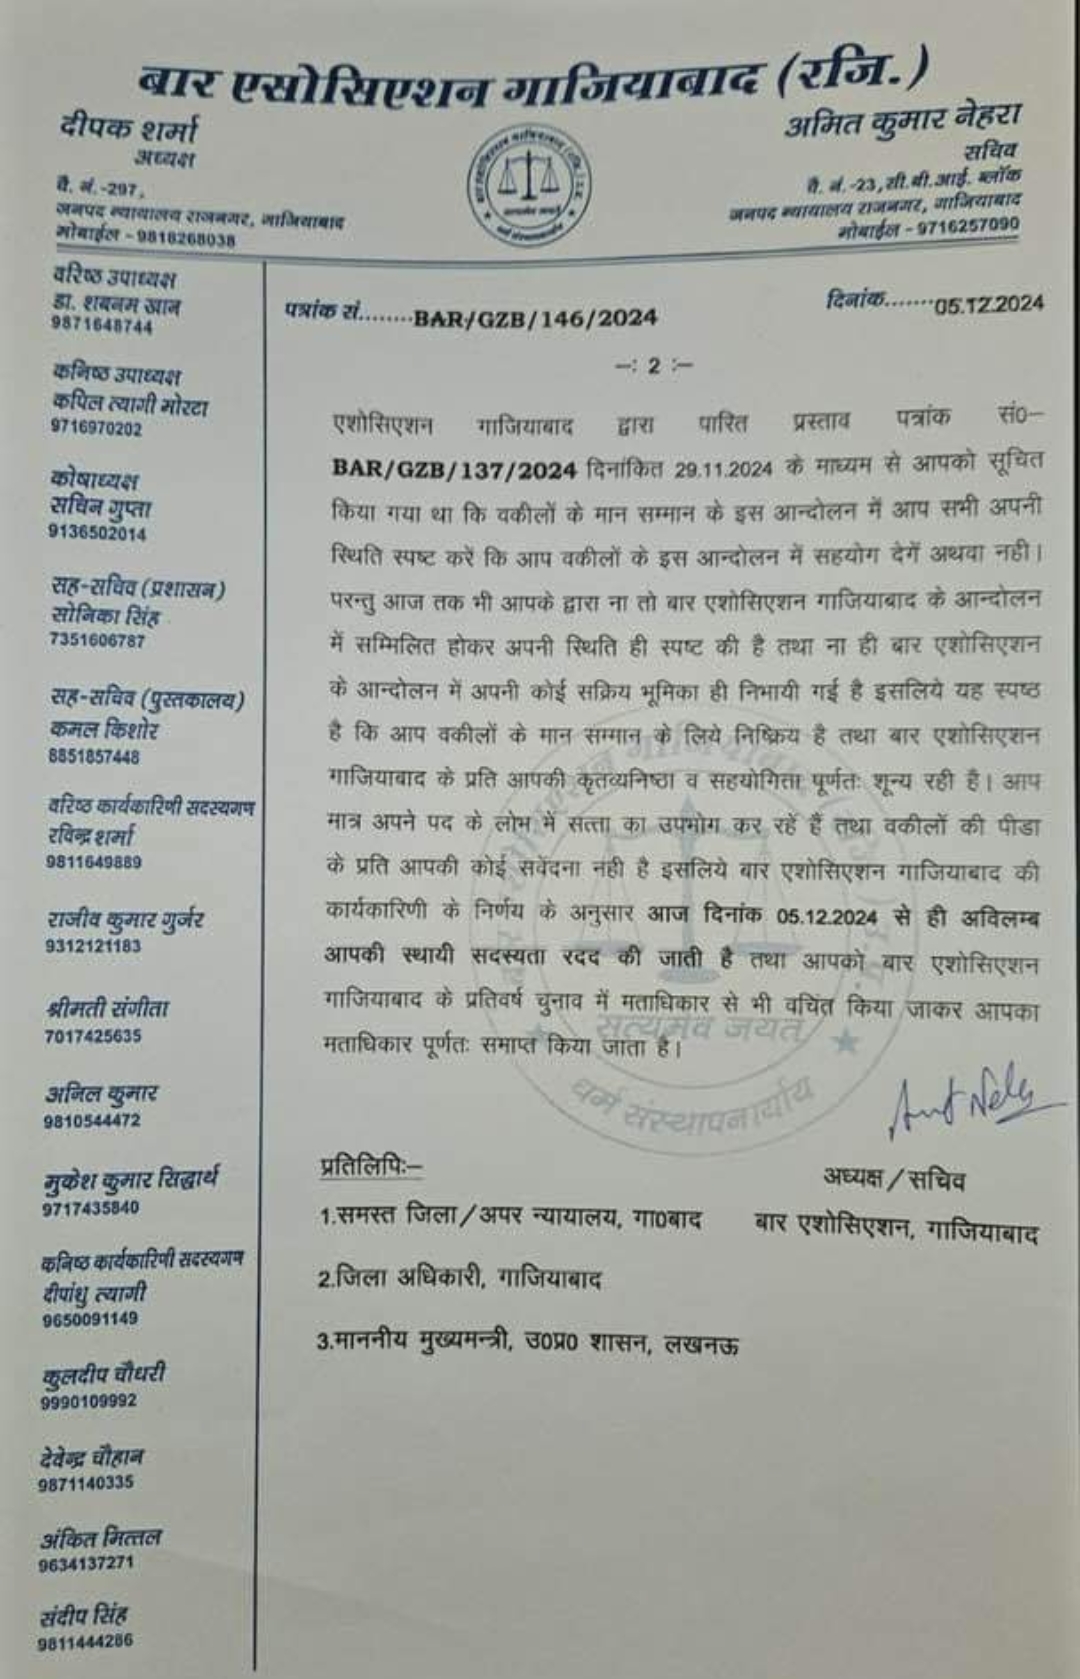 बार एसोसिएशन गाजियाबाद (रजि.)
दीपक शर्मा
अध्यक्ष
चै. नं.-297,
जनपद न्यायालय राजनगर, गाजियाबाद
मोबाईल - 9818268038
अमित कुमार नेहरा
सचिव
चै. नं.-23, सी.बी.आई. ब्लॉक
जनपद न्यायालय राजनगर, गाजियाबाद
मोबाईल - 9716257090
वरिष्ठ उपाध्यक्ष
डा. शबनम खान
9871648744
कनिष्ठ उपाध्यक्ष
कपिल त्यागी मोरटा
9716970202
कोषाध्यक्ष
सचिन गुप्ता
9136502014
सह-सचिव (प्रशासन)
सोनिका सिंह
7351606787
सह-सचिव (पुस्तकालय)
कमल किशोर
8851857448
वरिष्ठ कार्यकारिणी सदस्यगण
रविन्द्र शर्मा
9811649889
राजीव कुमार गुर्जर
9312121183
श्रीमती संगीता
7017425635
अनिल कुमार
9810544472
मुकेश कुमार सिद्धार्थ
9717435840
कनिष्ठ कार्यकारिणी सदस्यगण
दीपांशु त्यागी
9650091149
कुलदीप चौधरी
9990109992
देवेन्द्र चौहान
9871140335
अंकित मित्तल
9634137271
संदीप सिंह
9811444286
पत्रांक सं........BAR/GZB/146/2024
दिनांक.......05.12.2024
-: 2 :-
एशोसिएशन गाजियाबाद द्वारा पारित प्रस्ताव पत्रांक सं0-
BAR/GZB/137/2024 दिनांकित 29.11.2024 के माध्यम से आपको सूचित
किया गया था कि वकीलों के मान सम्मान के इस आन्दोलन में आप सभी अपनी
स्थिति स्पष्ट करें कि आप वकीलों के इस आन्दोलन में सहयोग देगें अथवा नही।
परन्तु आज तक भी आपके द्वारा ना तो बार एशोसिएशन गाजियाबाद के आन्दोलन
में सम्मिलित होकर अपनी स्थिति ही स्पष्ट की है तथा ना ही बार एशोसिएशन
के आन्दोलन में अपनी कोई सक्रिय भूमिका ही निभायी गई है इसलिये यह स्पष्ठ
है कि आप वकीलों के मान सम्मान के लिये निष्क्रिय है तथा बार एशोसिएशन
गाजियाबाद के प्रति आपकी कृतव्यनिष्ठा व सहयोगिता पूर्णतः शून्य रही है। आप
मात्र अपने पद के लोभ में सत्ता का उपभोग कर रहें हैं तथा वकीलों की पीडा
के प्रति आपकी कोई सवेंदना नही है इसलिये बार एशोसिएशन गाजियाबाद की
कार्यकारिणी के निर्णय के अनुसार आज दिनांक 05.12.2024 से ही अविलम्ब
आपकी स्थायी सदस्यता रदद की जाती है तथा आपको बार एशोसिएशन
गाजियाबाद के प्रतिवर्ष चुनाव में मताधिकार से भी वचिंत किया जाकर आपका
मताधिकार पूर्णतः समाप्त किया जाता है।
सत्यमेव जयते
धर्म संस्थापनार्थाय
प्रतिलिपिः-
अध्यक्ष/सचिव
1.समस्त जिला/अपर न्यायालय, गा0बाद
बार एशोसिएशन, गाजियाबाद
2.जिला अधिकारी, गाजियाबाद
3.माननीय मुख्यमन्त्री, उ0प्र0 शासन, लखनऊ